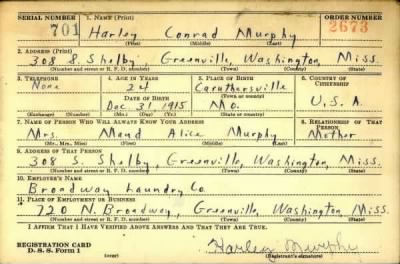 SERIAL NUMBER 1. NAME (Print) ORDER NUMBER
701 Harley Conrad Murphy 2673
(First) (Middle) (Last)
2. ADDRESS (Print)
308 S. Shelby, Greenville, Washington, Miss.
(Number and street or R. F. D. number) (Town) (County) (State)
3. TELEPHONE 4. AGE IN YEARS 5. PLACE OF BIRTH 6. COUNTRY OF CITIZENSHIP
None 24 Caruthersville
(Town or county)
DATE OF BIRTH
Dec. 31, 1915 Mo. U.S.A.
(Exchange) (Number) (Mo.) (Day) (Yr.) (State or country)
7. NAME OF PERSON WHO WILL ALWAYS KNOW YOUR ADDRESS 8. RELATIONSHIP OF THAT PERSON
Mrs. Maud Alice Murphy Mother
(Mr., Mrs., Miss) (First) (Middle) (Last)
9. ADDRESS OF THAT PERSON
308 S. Shelby, Greenville, Washington, Miss.
(Number and street or R. F. D. number) (Town) (County) (State)
10. EMPLOYER'S NAME
Broadway Laundry Co.
11. PLACE OF EMPLOYMENT OR BUSINESS
720 N. Broadway, Greenville, Washington, Miss.
(Number and street or R. F. D. number) (Town) (County) (State)
I AFFIRM THAT I HAVE VERIFIED ABOVE ANSWERS AND THAT THEY ARE TRUE.
REGISTRATION CARD
D. S. S. Form 1 (over) Harley Murphy
(Registrant's signature)